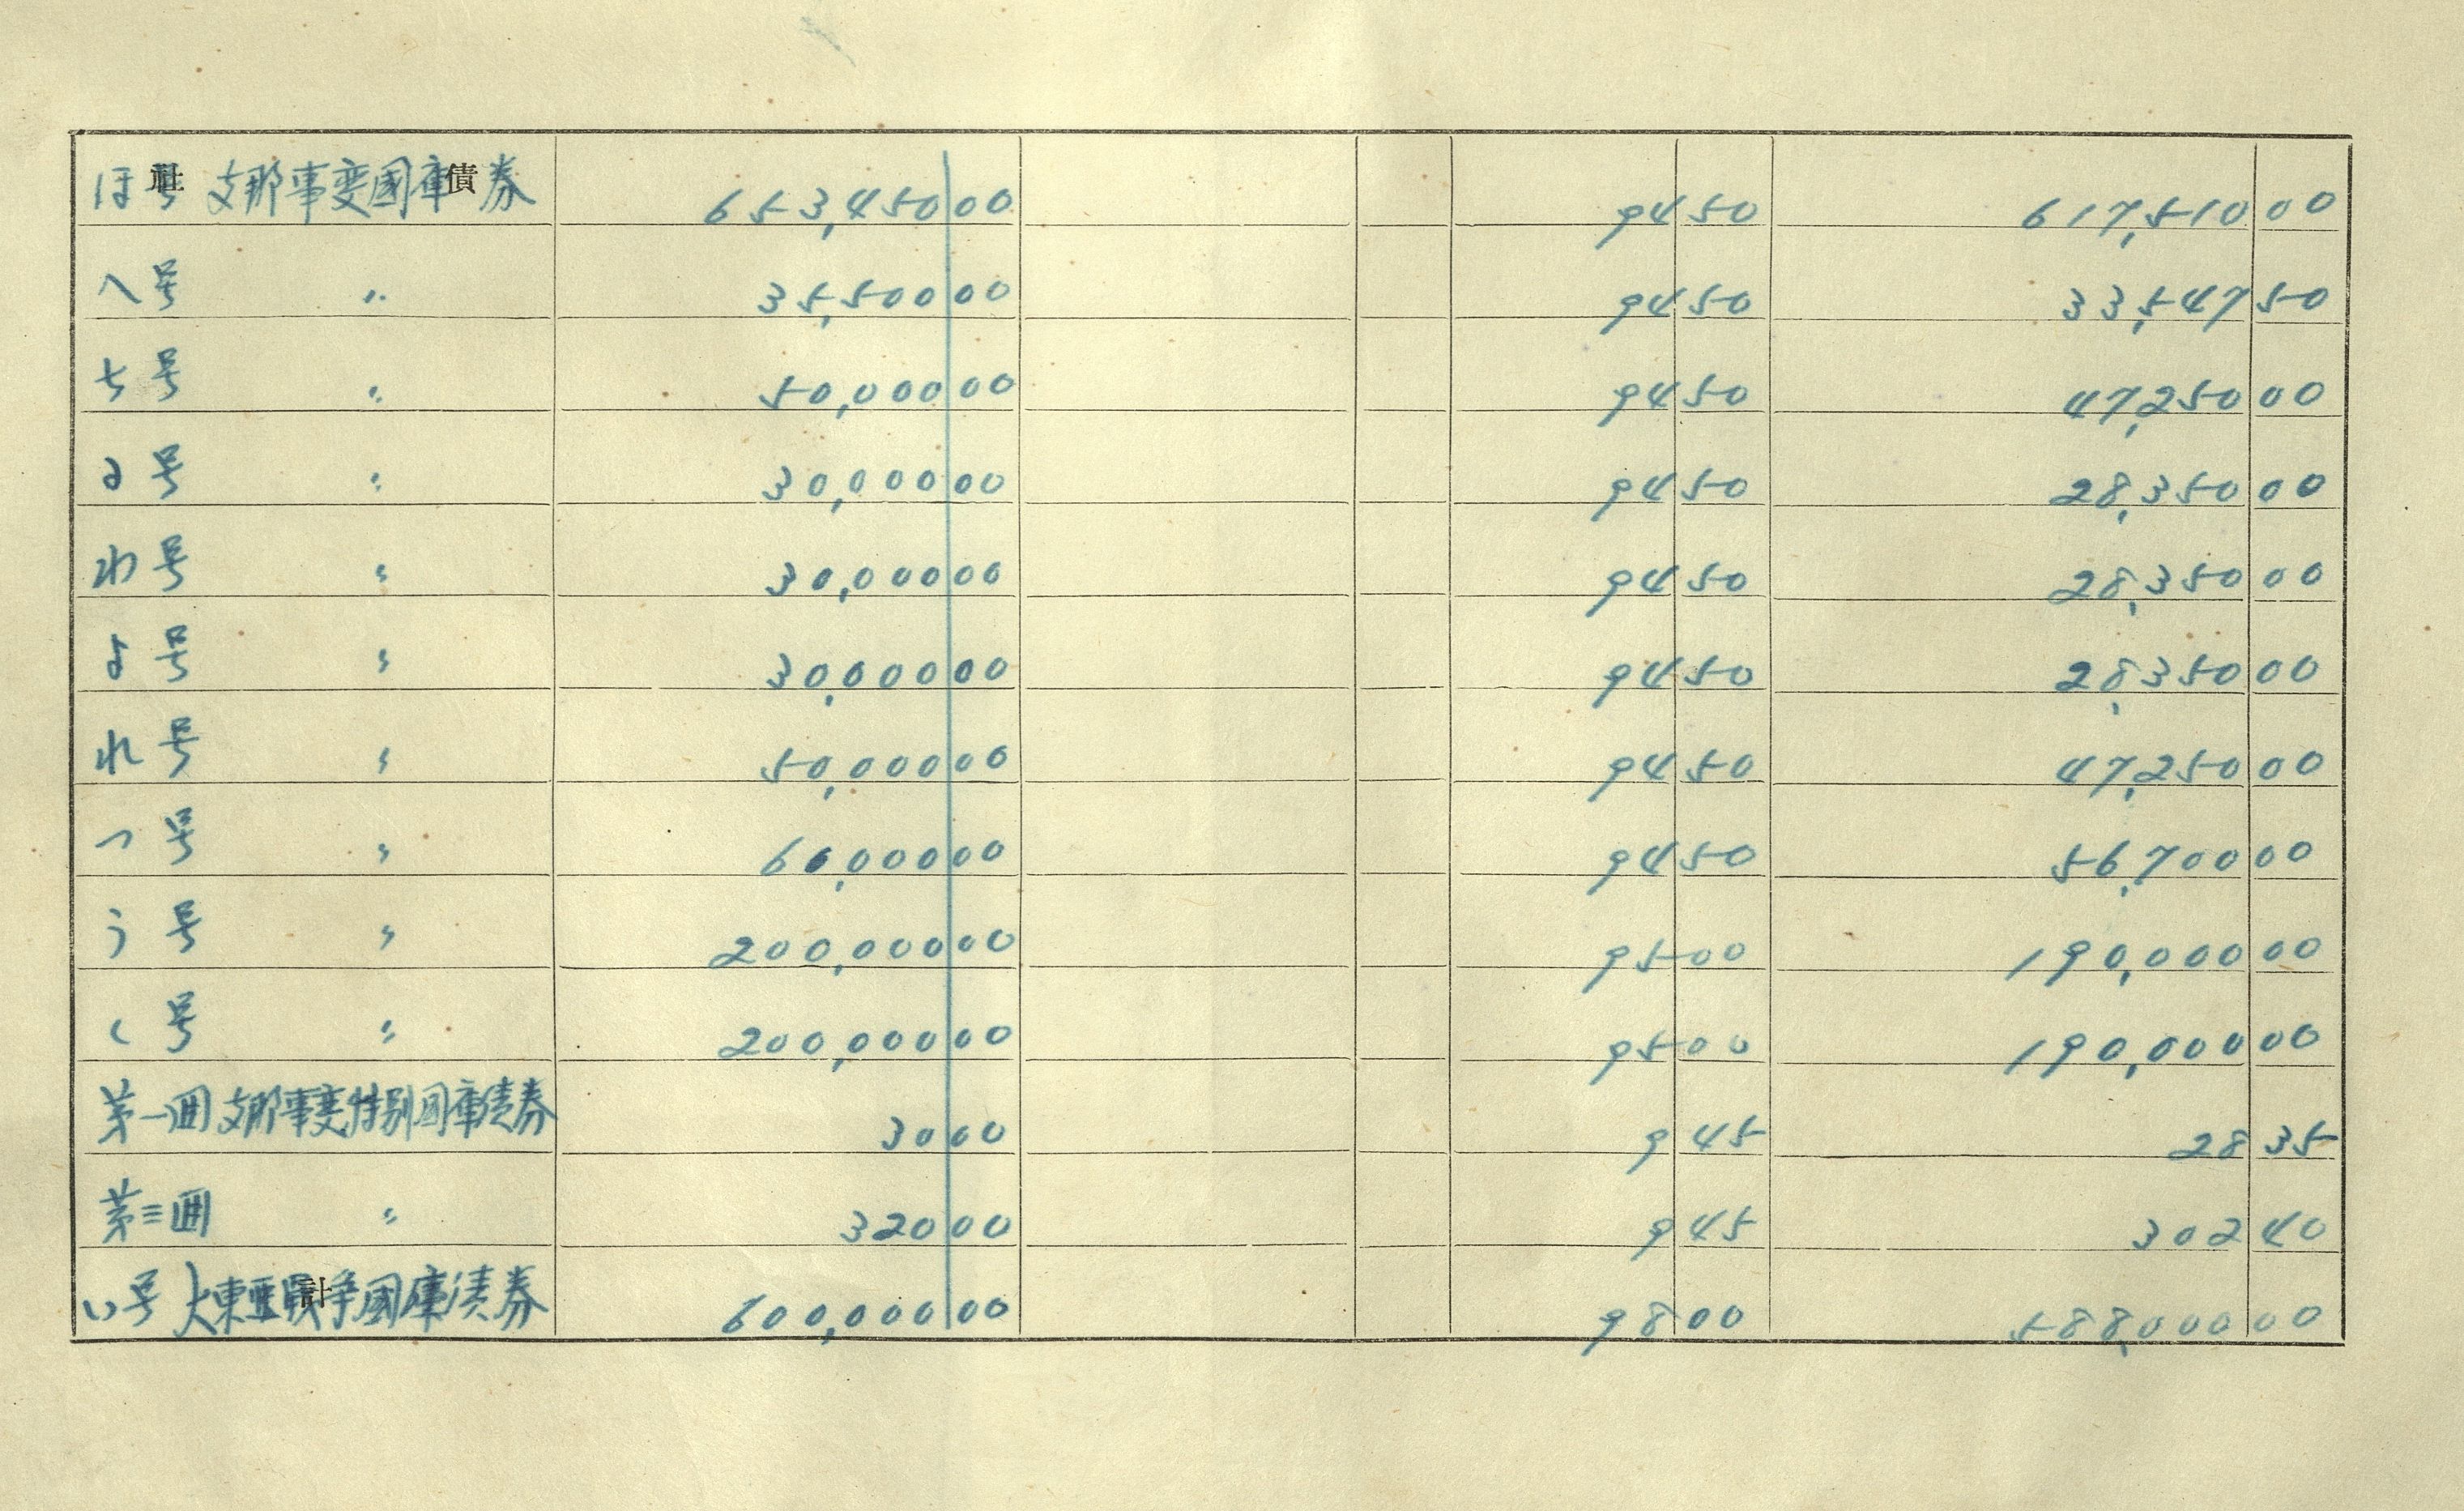 ほ号 支那事変國庫債券 653,450 00 94 50 617,510 00
へ号 〃 35,500 00 94 50 33,547 50
ち号 〃 50,000 00 94 50 47,250 00
る号 〃 30,000 00 94 50 28,350 00
わ号 〃 30,000 00 94 50 28,350 00
よ号 〃 30,000 00 94 50 28,350 00
れ号 〃 50,000 00 94 50 47,250 00
つ号 〃 60,000 00 94 50 56,700 00
う号 〃 200,000 00 95 00 190,000 00
く号 〃 200,000 00 95 00 190,000 00
第一回支那事変特別国庫債券 30 00 9 45 28 35
第三回 〃 320 00 9 45 302 40
い号 大東亜戦争國庫債券 600,000 00 98 00 588,000 00
社 債
計